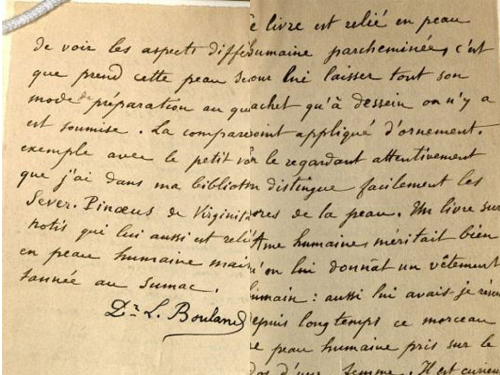 de voir les aspects diffé
que prend cette peau se
mode de préparation au qu
est soumise. La compare
exemple avec le petit vo
que j'ai dans ma biblioth
Sever. Pinaeus de Virginit
notis qui lui aussi est reli
en peau humaine mais
tannée au sumac.
Dr L. Bouland
e livre est relié en peau
humaine parcheminée, c'est
our lui laisser tout son
achet qu'à dessein on n'y a
oint appliqué d'ornement.
le regardant attentivement
distingue facilement les
ores de la peau. Un livre sur
Ame humaine méritait bien
'on lui donnât un vêtement
umain : aussi lui avais je réser
epuis longtemps ce morceau
e peau humaine pris sur le
os d'une femme. Il est curieu